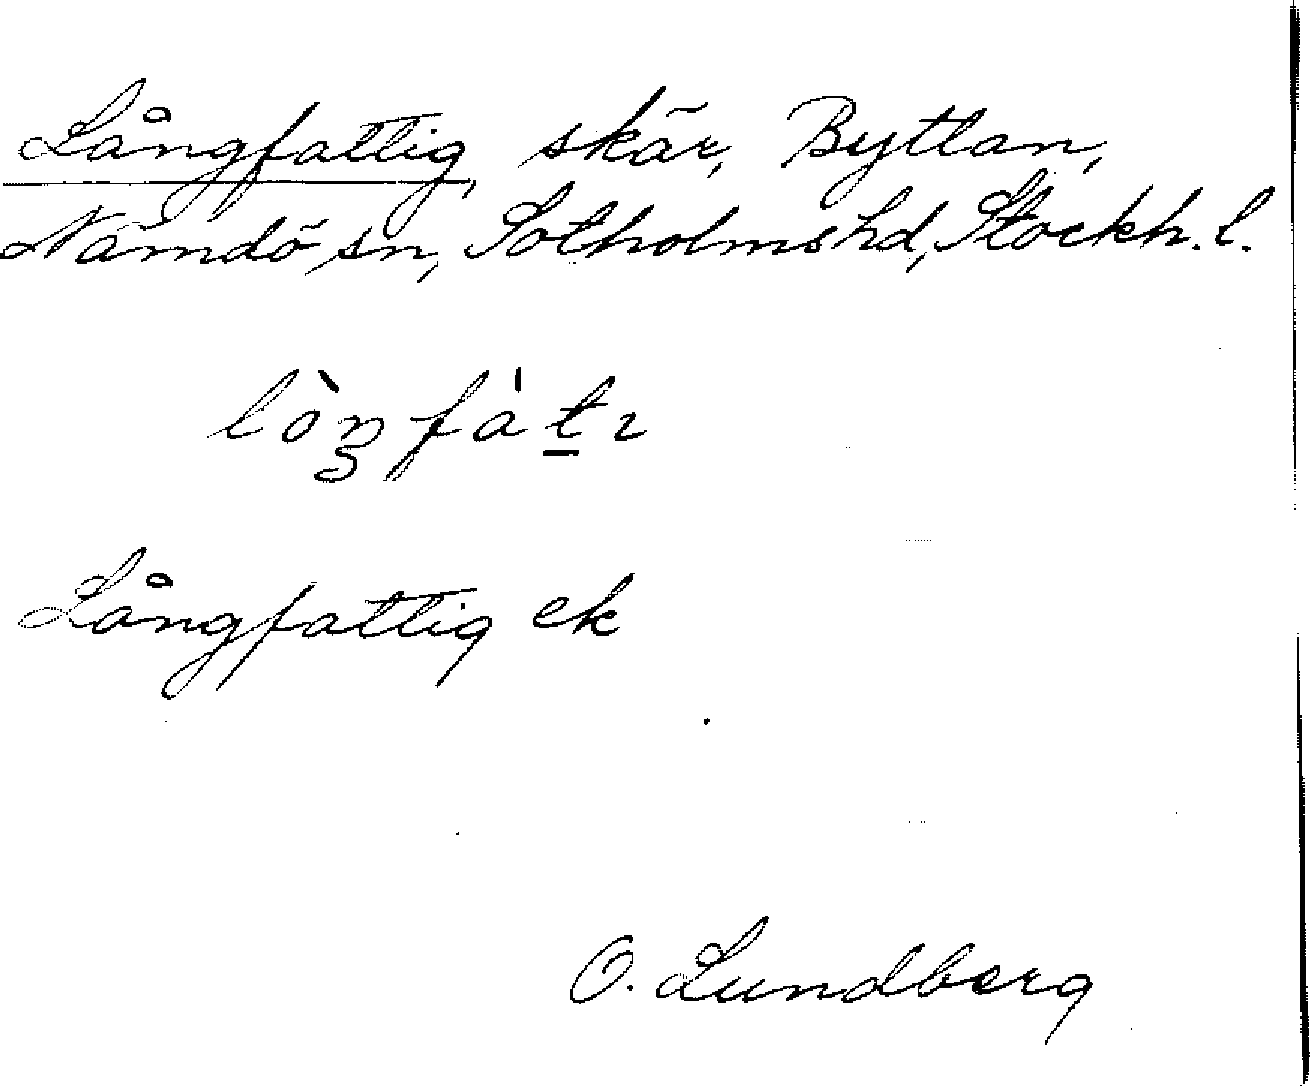 Långfattig, skär, Byttan,
Nämdö sn, Sotholms hd, Stockh. l.
lòŋfàtı
Långfattig ek
O. Lundberg